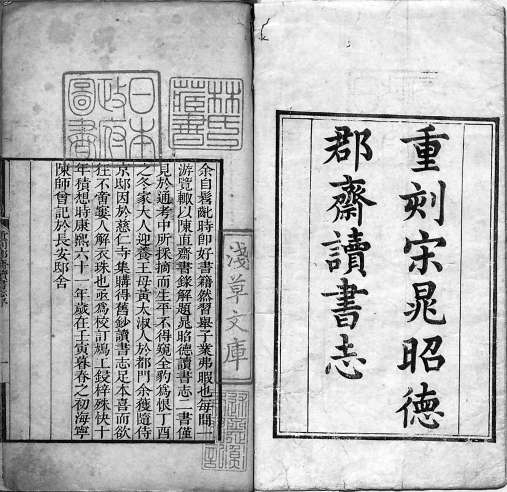 重刻宋晁昭德
郡齋讀書志
林氏
藏書
日本
政府
圖書
淺草文庫
余自髫齓時即好書籍然習舉子業弗暇也每閒一
游覽輒以陳直齋書錄解題晁昭德讀書志二書僅
見於通考中所採摘而生平不得窺全豹為恨丁酉
之冬家大人迎養王母黃太淑人於都門余獲隨侍
京邸因於慈仁寺集購得舊鈔讀書志足本喜而欲
狂不啻窶人解衣珠也亟為校訂焉工錢梓殊快十
年積想時康熙六十一年歲在壬寅暮春之初海寧
陳師曾記於長安邸舍